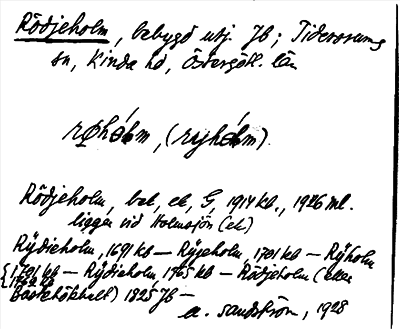 Rödjeholm, bebygd utj. Jb; Tidersrums
sn, Kinda hd, Östergötl. län
røhólm, (ryhólm).
Rödjeholm, bel, ek, G, 1914 kb., 1926 ml.
ligger vid Holmsjön (ek)
Rÿdieholm, 1691 kb — Ryeholm, 1701 kb — Rÿholm
1701 kb — Rÿdieholm, 1765 kb — Rödjeholm (eller
) 1825 Jb —
A. Sandström, 1928